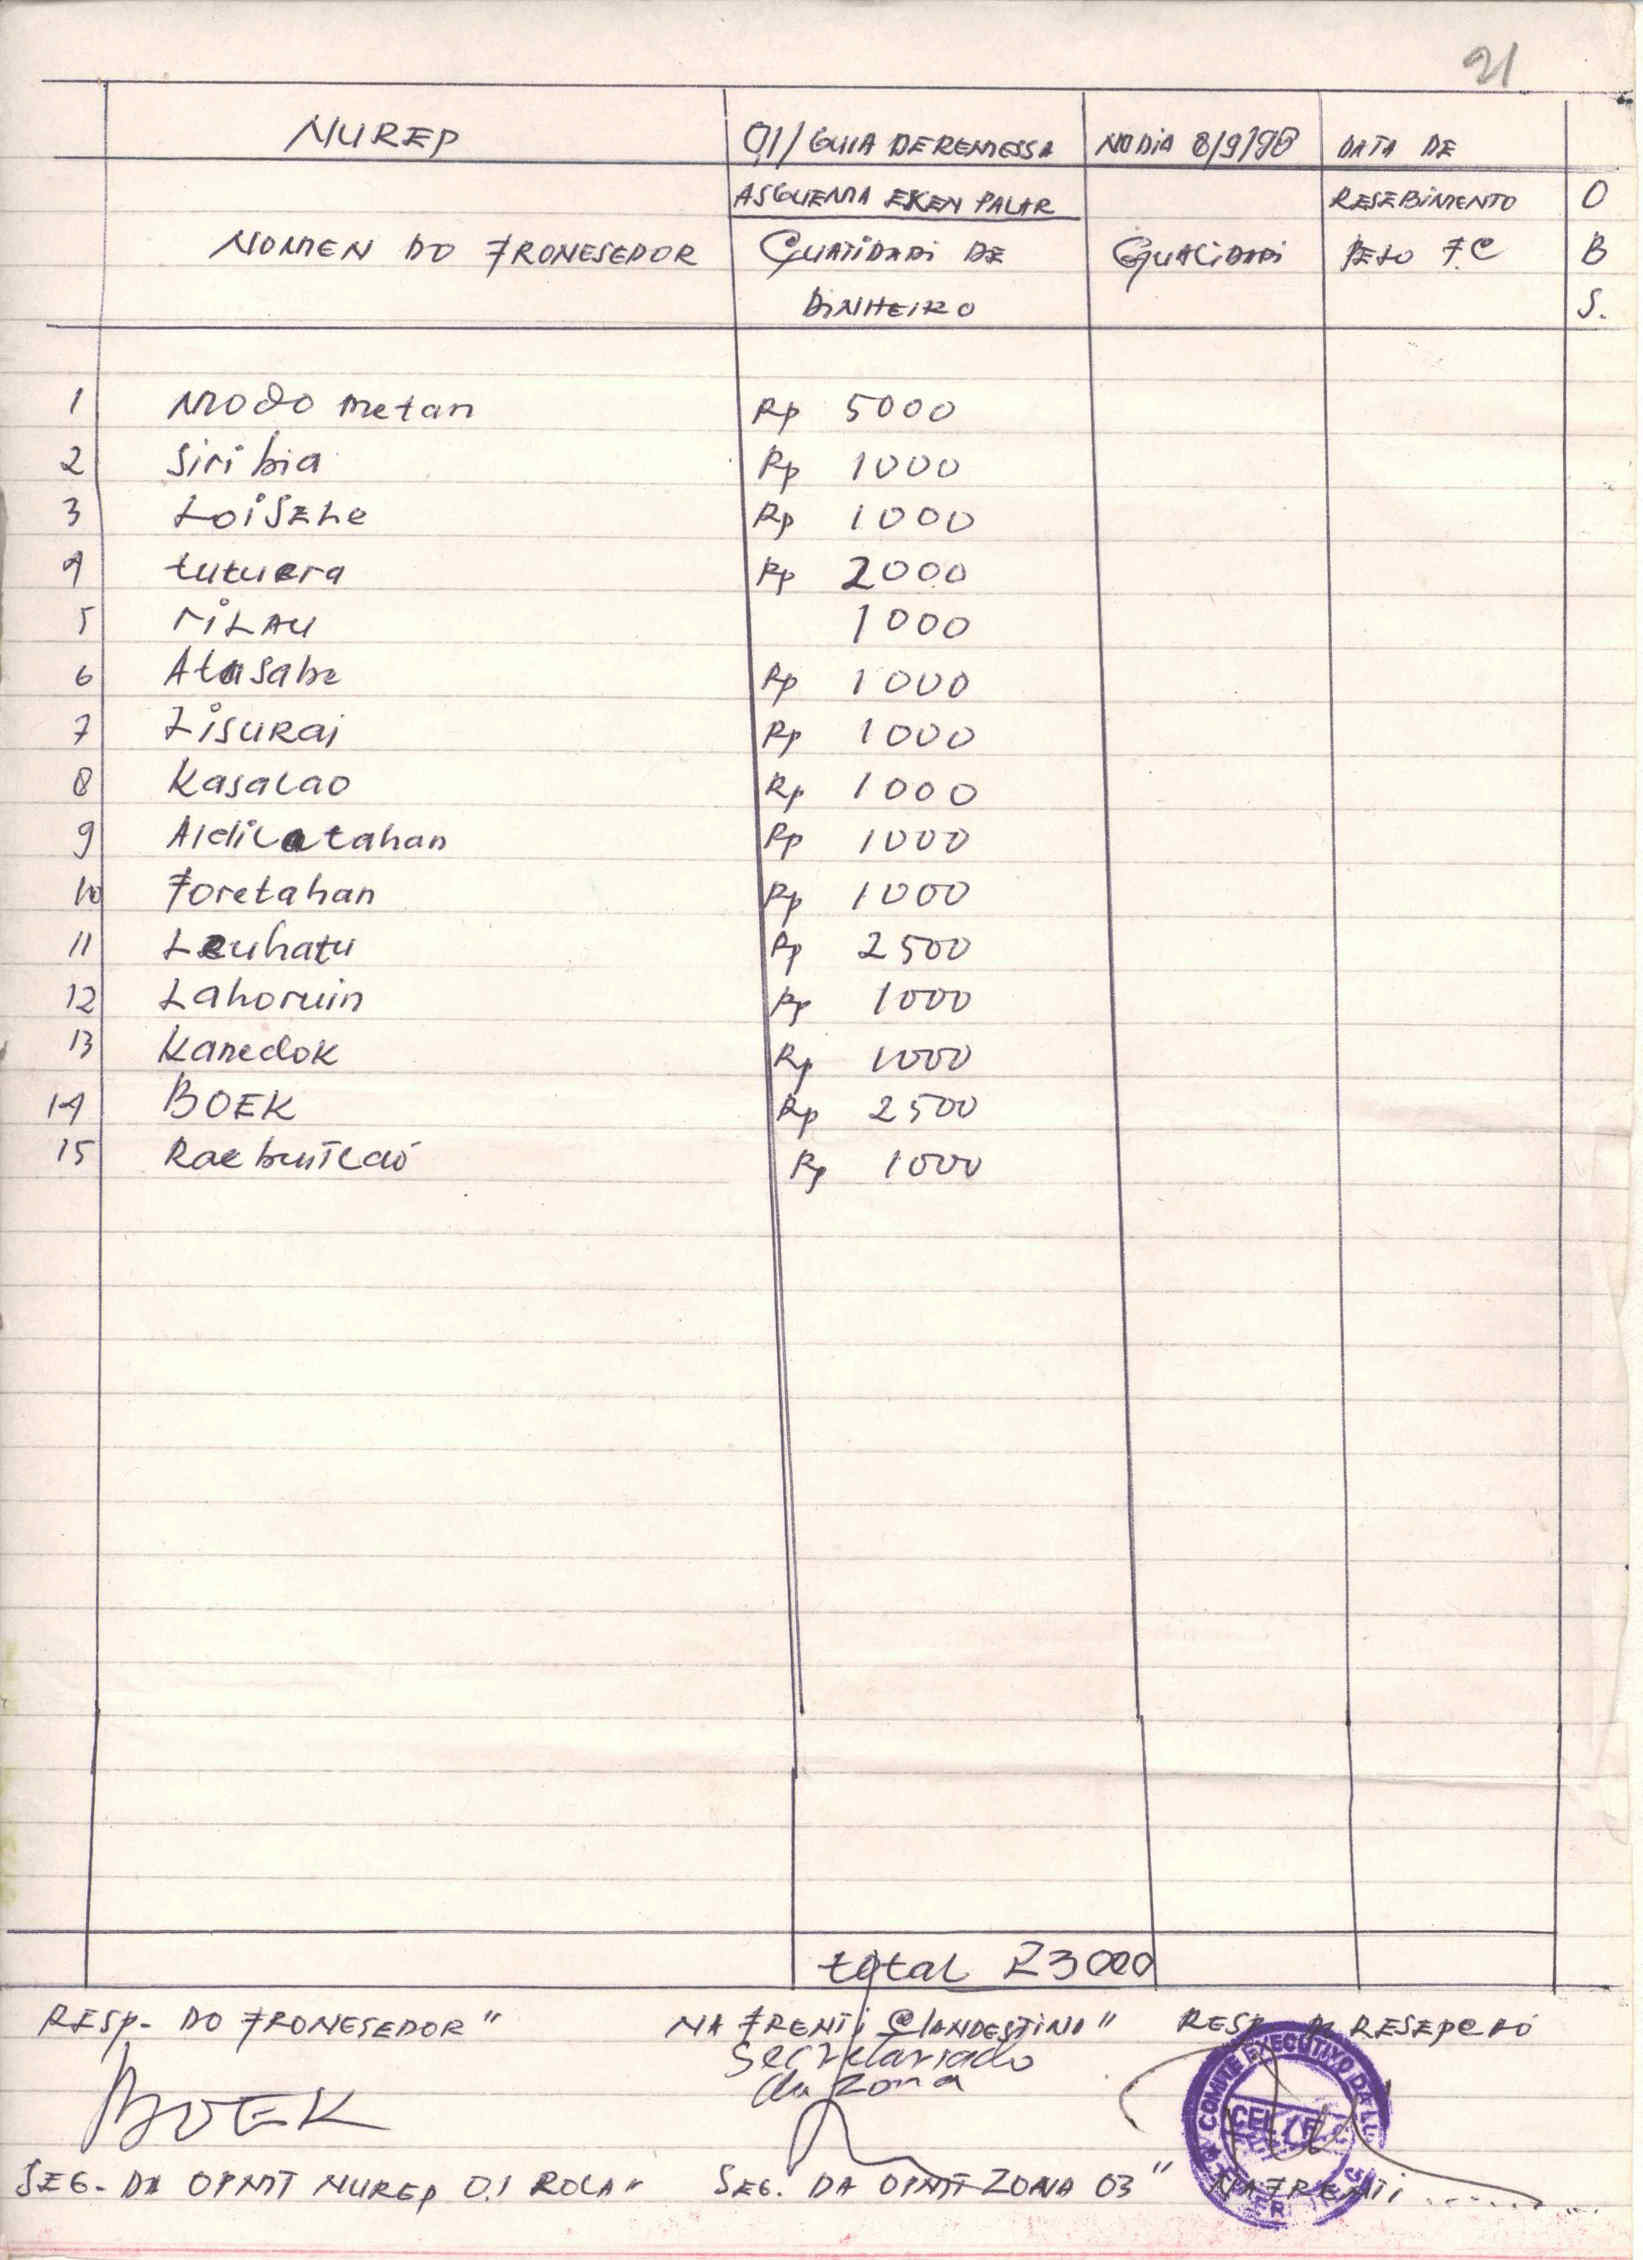 21
NUREP 01/GUIA DE REMESSA NO DIA 8/9/98 DATA DE
ASGUEMA EKEN PALAR RESEBIMENTO O
NOMEN DO FRONESEDOR GUATIDADI DE GUALIDADI PELO F.C B
DINHEIRO S.
1 Modo metan Rp 5000
2 Siri bia Rp 1000
3 LoiSELe Rp 1000
4 tutuera Rp 2000
5 riLAU 1000
6 Atasabe Rp 1000
7 Lisurai Rp 1000
8 Kasalao Rp 1000
9 Aidilatahan Rp 1000
10 Foretahan Rp 1000
11 Leuhatu Rp 2500
12 Lahoruin Rp 1000
13 Kanedok Rp 1000
14 BOEK Rp 2500
15 Rp 1000
total 23000
RESP. DO FRONESEDOR" NA FRENTI CLANDESTINA" RESP. DA RESEPCAÓ
Secretariado
da Zona
BOEK
COMITÉ EXECUTIVO DA LUTA
CEL/F.C
SEG. DA OPMT NUREP 0.1 ROLA" SEG. DA OPMT ZONA 03" NA FRENTI ..........